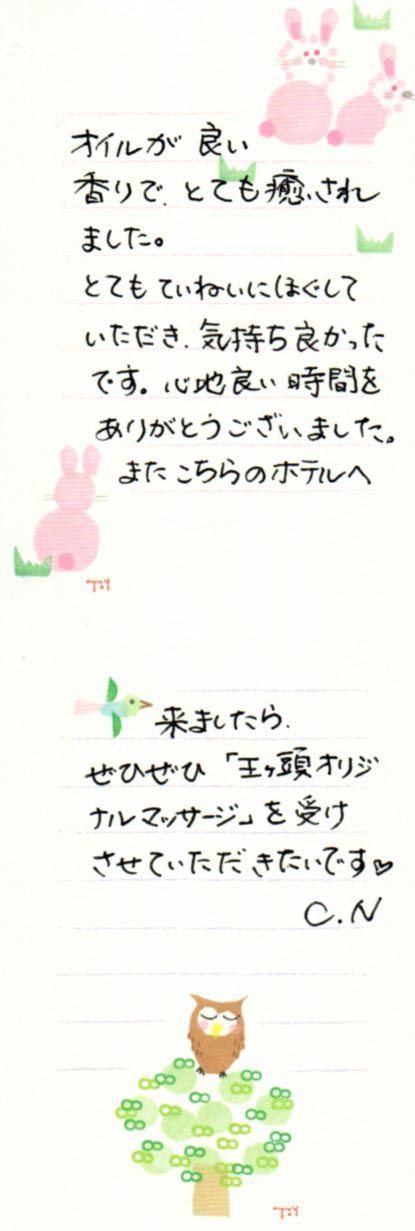 オイルが 良い
香りで、とても癒され
ました。
とてもていねいにほぐして
いただき、気持ち良かった
です。心地良い時間を
ありがとうございました。
また こちらのホテルへ
来ましたら、
ぜひぜひ「王ヶ頭オリジ
ナルマッサージ」を受け
させていただきたいです♡
C.N